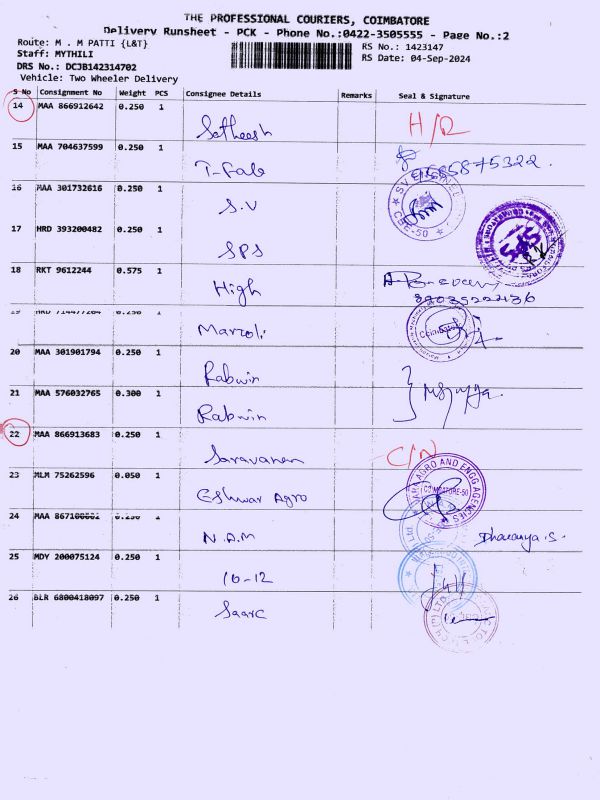 THE PROFESSIONAL COURIERS, COIMBATORE
Delivery Runsheet - PCK - Phone No.:0422-3505555 - Page No.:2
Route: M . M PATTI {L&T}
RS No.: 1423147
Staff: MYTHILI
RS Date: 04-Sep-2024
DRS No.: DCJB142314702
Vehicle: Two Wheeler Delivery
S No Consignment No Weight PCS Consignee Details Remarks Seal & Signature
14 MAA 866912642 0.250 1 Satheesh H/R
15 MAA 704637599 0.250 1 T-Fab
16 MAA 301732616 0.250 1 S.V CBE-50
17 HRD 393200482 0.250 1 SPS SPS
18 RKT 9612244 0.575 1 High
19 HRD 714477264 0.250 1 Marroli Coimbatore
20 MAA 301901794 0.250 1 Rabwin
21 MAA 576032765 0.300 1 Rabwin
22 MAA 866913683 0.250 1 Saravanan C/N
23 MLM 75262596 0.050 1 Eshwar Agro AGRO AND ENGG AGENCIES COIMBATORE-50
24 MAA 0.250 1 N.A.M Dharanya.S.
25 MDY 200075124 0.250 1 10-12
26 BLR 6800418097 0.250 1 Saarc